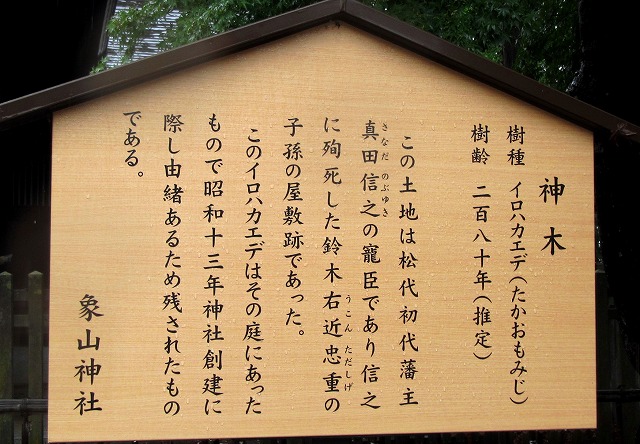 神木
樹種 イロハカエデ(たかおもみじ)
樹齢 二百八十年(推定)
この土地は松代初代藩主
真田信之の寵臣であり信之
さなだ のぶゆき
に殉死した鈴木右近忠重の
うこん ただしげ
子孫の屋敷跡であった。
このイロハカエデはその庭にあった
もので昭和十三年神社創建に
際し由緒あるため残されたもの
である。
象山神社